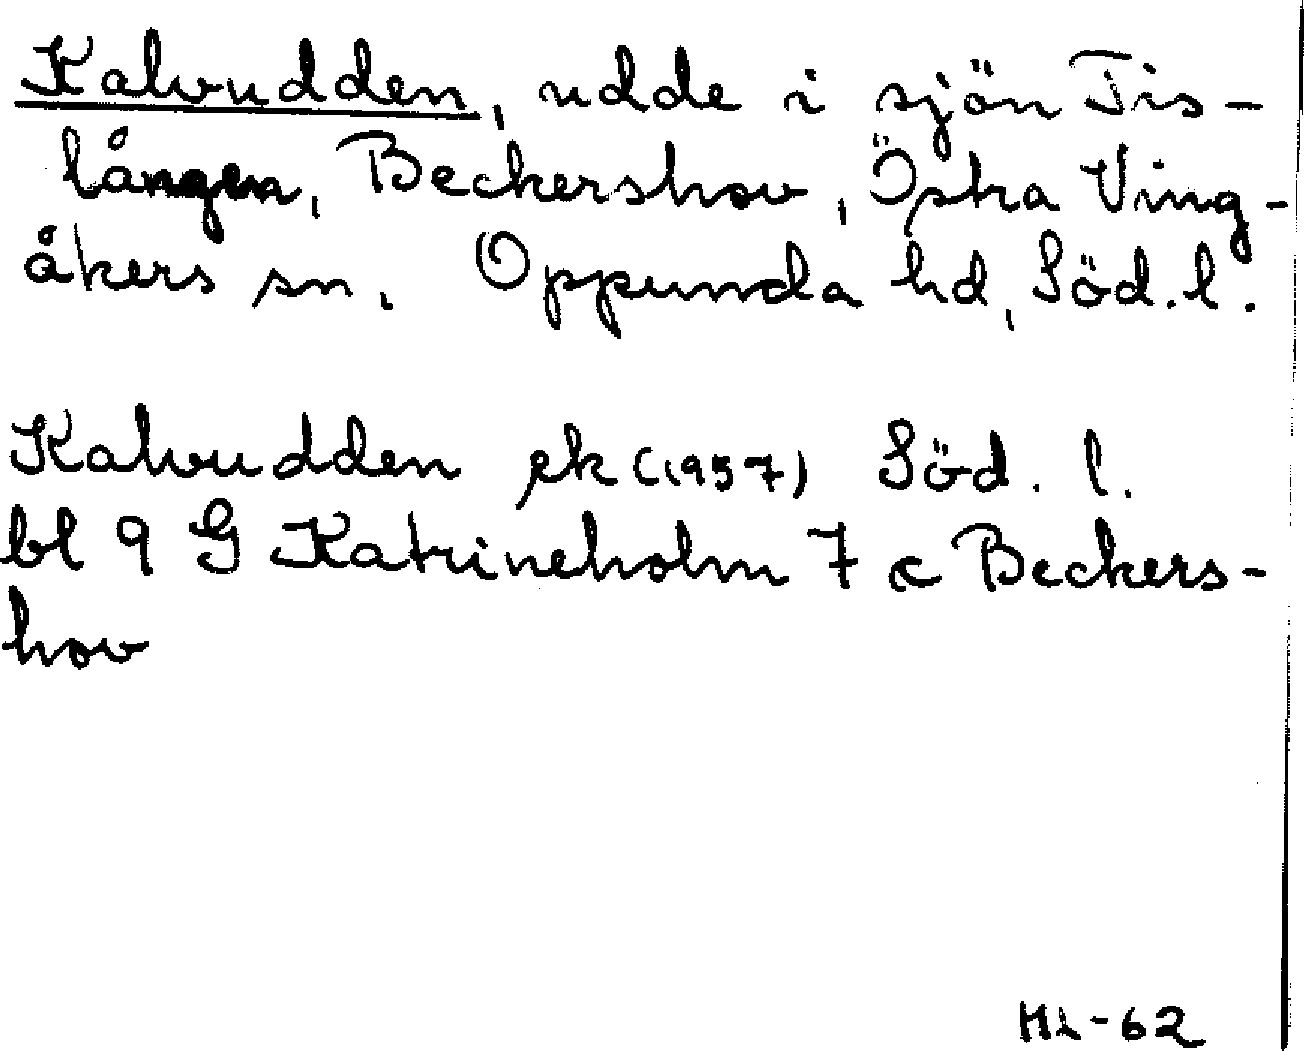 Kalvudden, udde i sjön Tis-
lången, Beckershov, Östra Ving-
åkers sn. Oppunda hd, Söd. l.
Kalvudden ek (1957) Söd. l.
bl 9 G Katrineholm 7 c Beckers-
hov
HL-62